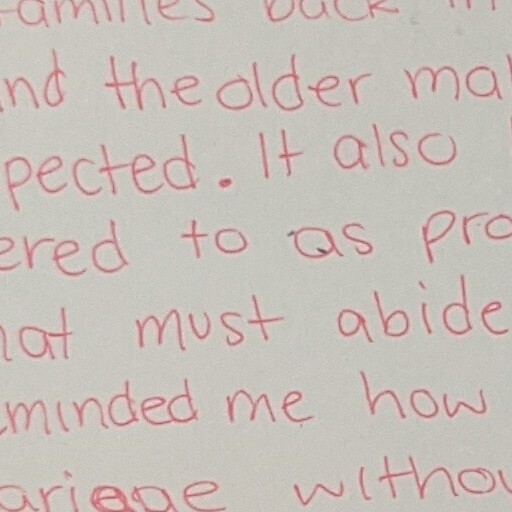 families back in
nd the older ma
pected. It also
ered to as pro
hat must abide
minded me how
ariage withou